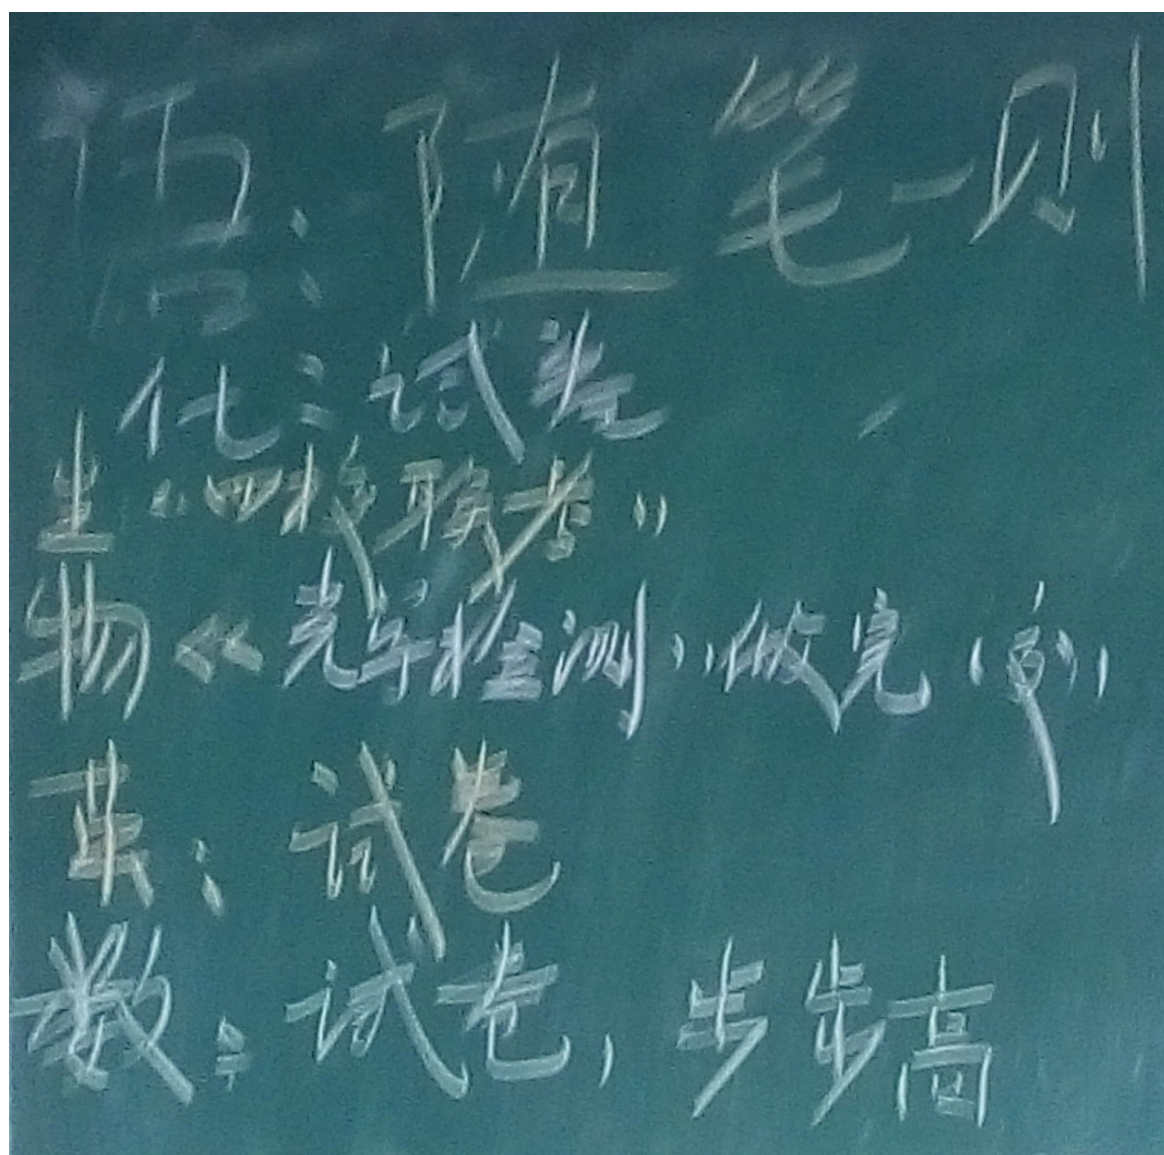 语:随笔一则
化:试卷
生 "四校联考"
物 《光学检测》做完
英:试卷
数:试卷,步步高